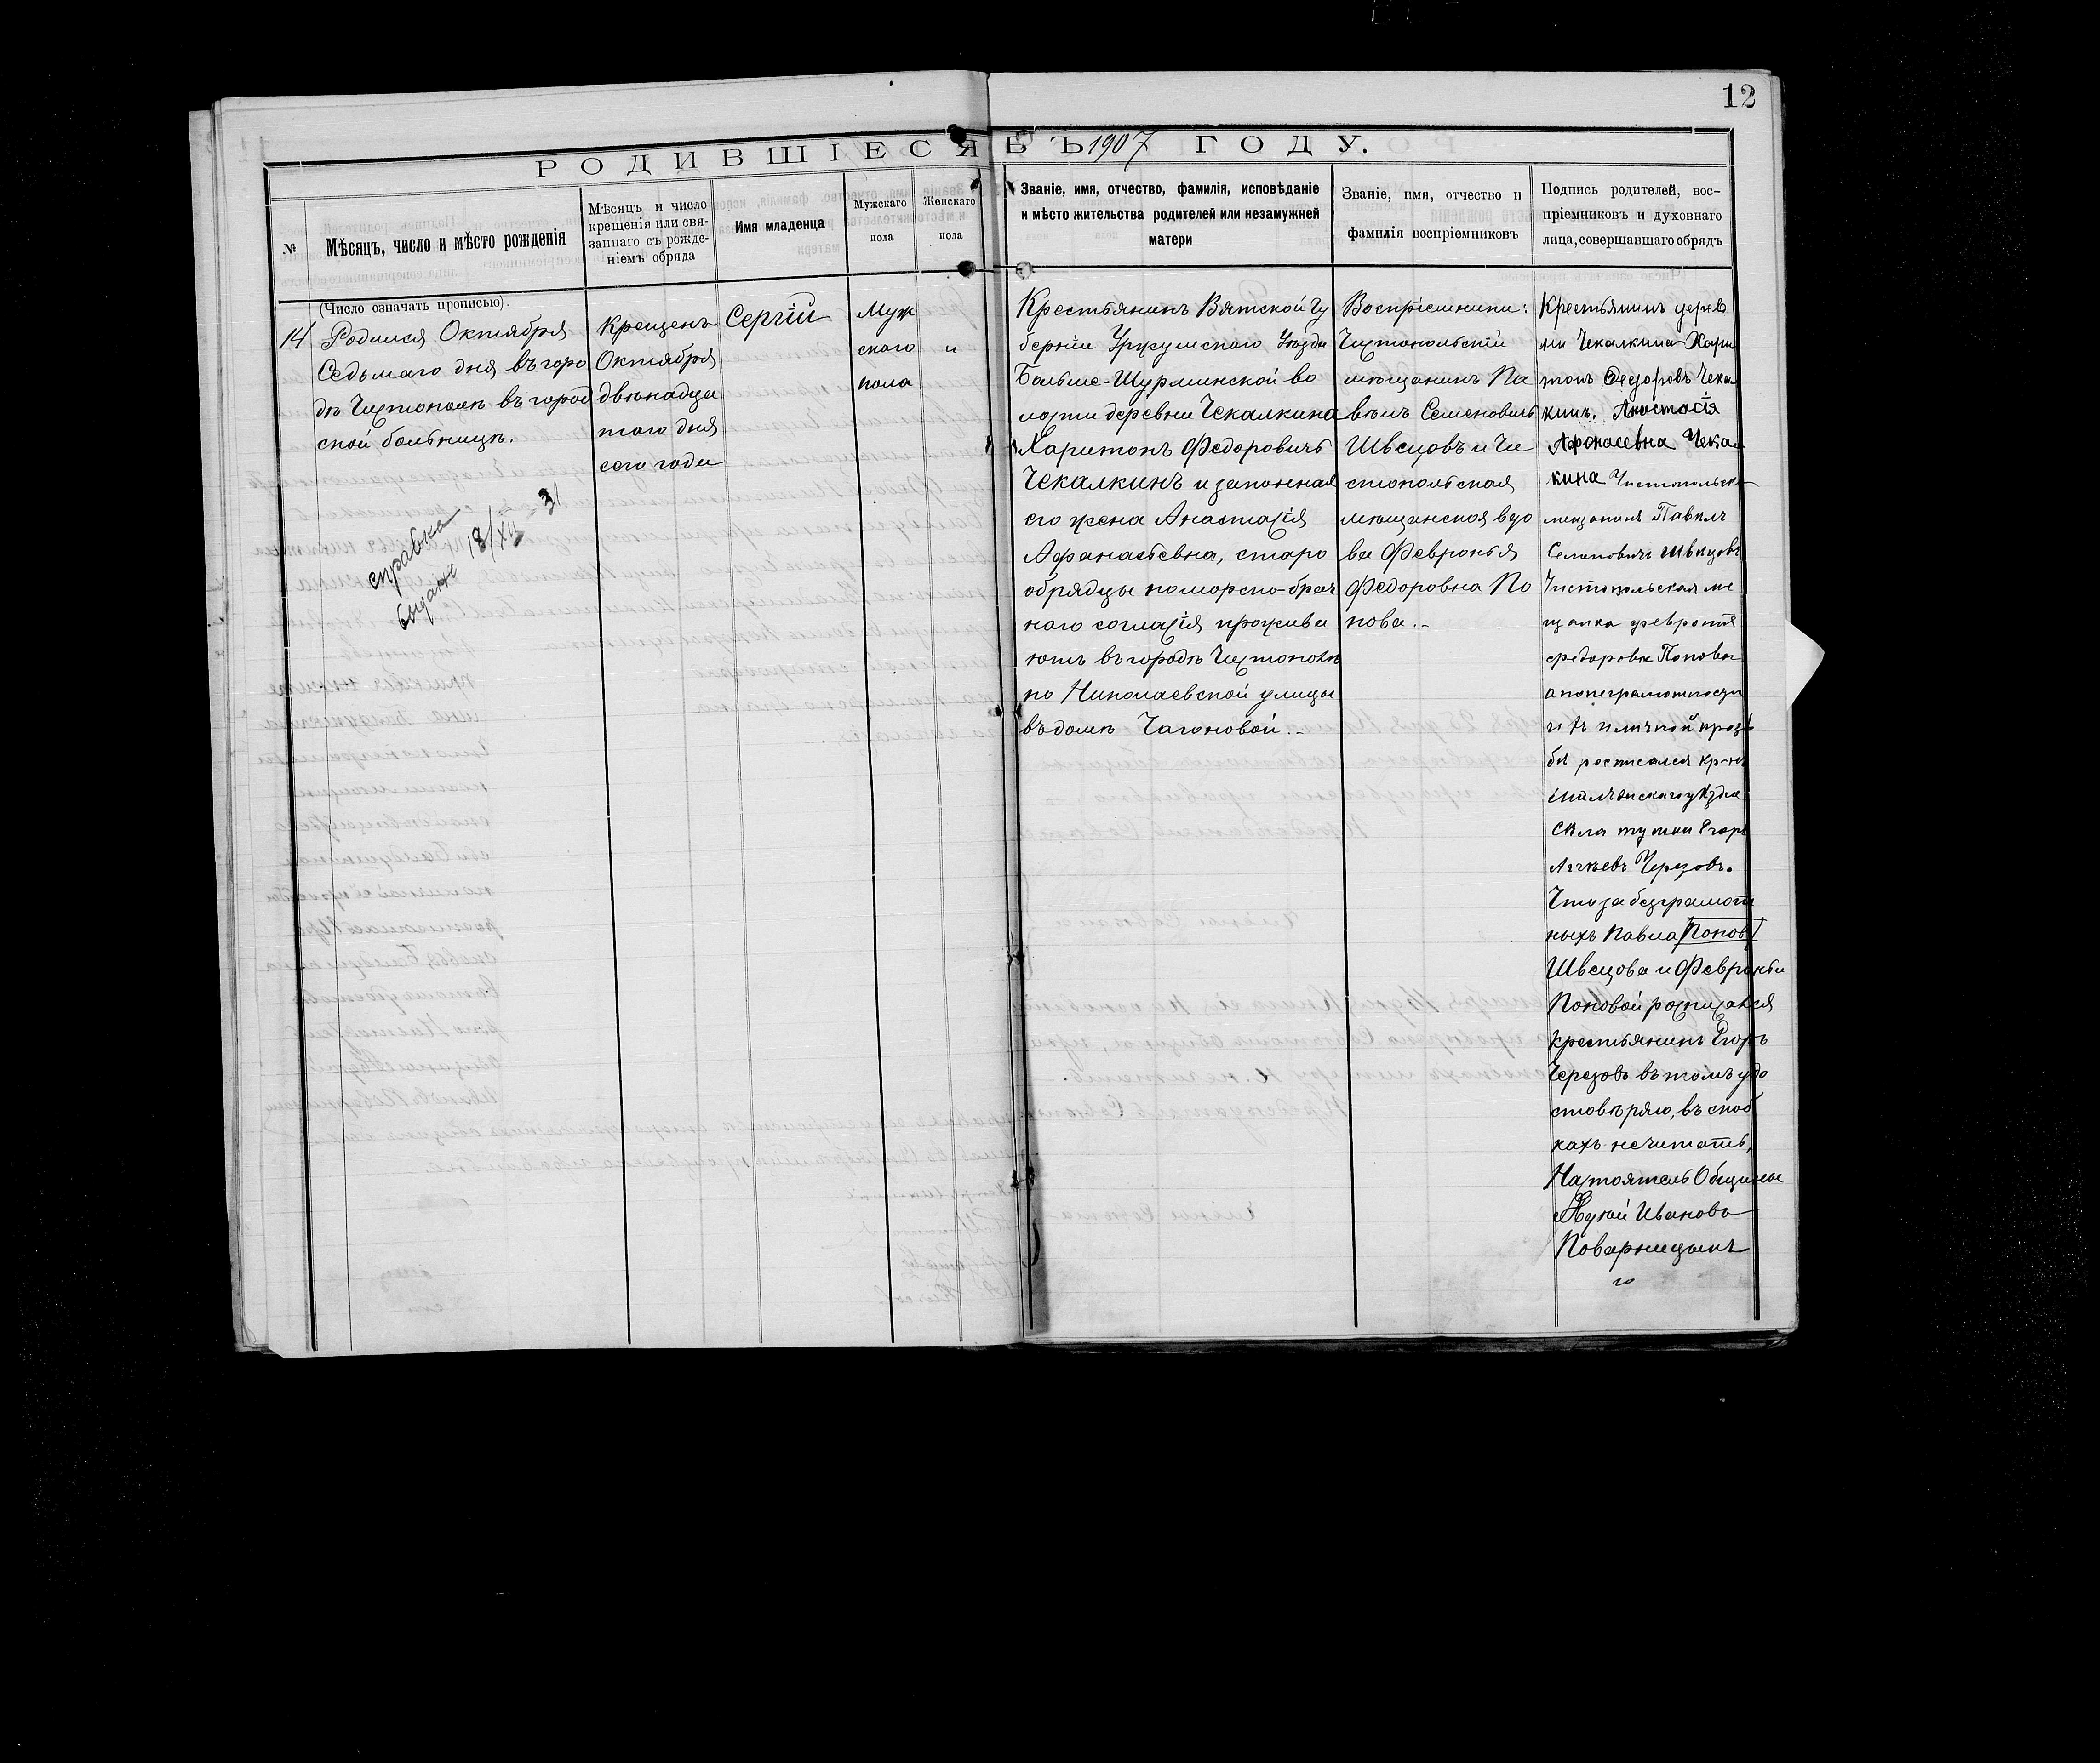 12
РОДИВШІЕСЯ ВЪ 1907 ГОДУ.
№
Мѣсяцъ, число и мѣсто рожденія
Мѣсяцъ и число
крещенія или свя-
заннаго съ рожде-
ніемъ обряда
Имя младенца
Мужскаго
пола
Женскаго
пола
Званіе, имя, отчество, фамилія, исповѣданіе
и мѣсто жительства родителей или незамужней
матери
Званіе, имя, отчество и
фамилія воспріемниковъ
Подпись родителей, вос-
пріемниковъ и духовнаго
лица, совершавшаго обрядъ
(Число означать прописью).
14
Родился Октября
Седьмаго дня въ горо
дѣ Чистополѣ въ город
ской больницѣ.
справка
выдана 18/XII 31
Крещенъ
Октября
двѣнадца
таго дня
сего года
Сергій
Муж
скаго
пола
"
Крестьянинъ Вятской Гу
берніи Уржумскаго Уѣзда
Больше-Шурминской во
лости деревни Чекалкина
Харитонъ Федоровичъ
Чекалкинъ и законная
его жена Анастасія
Афанасьевна, старо
обрядцы поморско-брач
наго согласія прожива
ютъ въ городѣ Чистополѣ
по Николаевской улицы
въ домѣ Чагоновой.-
Воспріемники:
Чистопольскій
мещанинъ Па
велъ Семеновичъ
Швецовъ и Чи
стопольская
мещанская вдо
ва Февронья
Федоровна По
пова.-
Крестьянинъ дерев
ни Чекалкина Хари
тонъ Федоровъ Чекал
кинъ. Анастасія
Афонасевна Чекал
кина Чистопольски
мещанинъ Павелъ
Семеновичъ Швецовъ
Чистопольская ме
щанка февронія
федоровна Попова
а понеграмотности
ихъ и личной прозь
бѣ росписался кр-нъ
села тушки Егоръ
Черезовъ.
Что за безграмот
ныхъ Павла Попов
Швецова и Февроньи
Поповой росписался
крестьянинъ Егоръ
Черезовъ въ томъ удо
стовѣряю, въ скоб
кахъ не читать,
Настоятель Общины
Ивановъ
Поварницынъ